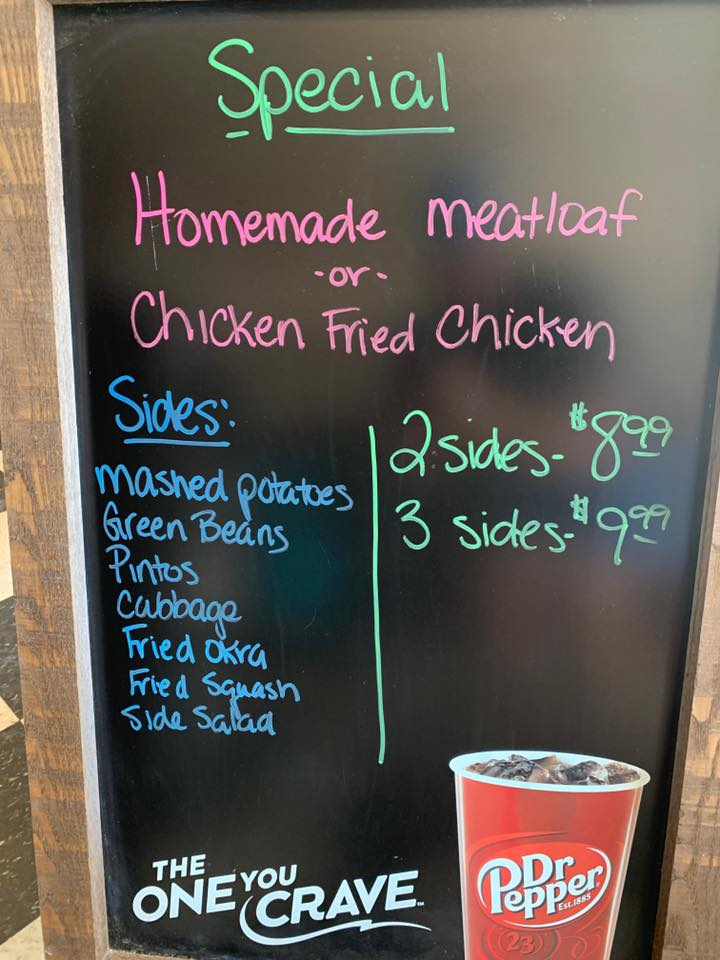 Special
Homemade meatloaf
-or-
Chicken Fried Chicken
Sides:
mashed potatoes
Green Beans
Pintos
Cabbage
Fried Okra
Fried Squash
Side Salad
2 sides- $8.99
3 sides- $9.99
THE
ONE YOU
CRAVE™
Dr
Pepper
Est. 1885
23